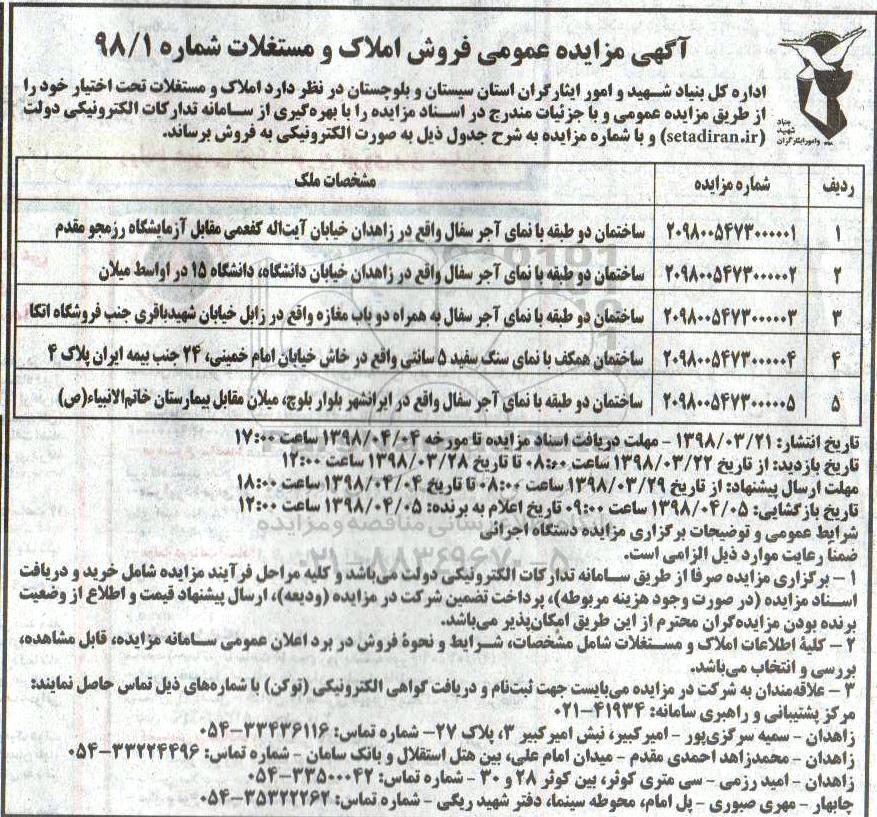 آگهی مزایده عمومی فروش املاک و مستغلات شماره ۹۸/۱
بنیاد
شهید
و امور ایثارگران
اداره کل بنیاد شهید و امور ایثارگران استان سیستان و بلوچستان در نظر دارد املاک و مستغلات تحت اختیار خود را
از طریق مزایده عمومی و با جزئیات مندرج در اسناد مزایده را با بهره‌گیری از سامانه تدارکات الکترونیکی دولت
(setadiran.ir) و با شماره مزایده به شرح جدول ذیل به صورت الکترونیکی به فروش برساند.
ردیف شماره مزایده مشخصات ملک
۱ ۲۰۹۸۰۰۵۴۷۳۰۰۰۰۰۱ ساختمان دو طبقه با نمای آجر سفال واقع در زاهدان خیابان آیت‌اله کفعمی مقابل آزمایشگاه رزمجو مقدم
۲ ۲۰۹۸۰۰۵۴۷۳۰۰۰۰۰۲ ساختمان دو طبقه با نمای آجر سفال واقع در زاهدان خیابان دانشگاه، دانشگاه ۱۵ در اواسط میلان
۳ ۲۰۹۸۰۰۵۴۷۳۰۰۰۰۰۳ ساختمان دو طبقه با نمای آجر سفال به همراه دو باب مغازه واقع در زابل خیابان شهیدباقری جنب فروشگاه اتکا
۴ ۲۰۹۸۰۰۵۴۷۳۰۰۰۰۰۴ ساختمان همکف با نمای سنگ سفید ۵ سانتی واقع در خاش خیابان امام خمینی، ۲۴ جنب بیمه ایران پلاک ۴
۵ ۲۰۹۸۰۰۵۴۷۳۰۰۰۰۰۵ ساختمان دو طبقه با نمای آجر سفال واقع در ایرانشهر بلوار بلوچ، میلان مقابل بیمارستان خاتم‌الانبیاء(ص)
تاریخ انتشار: ۱۳۹۸/۰۳/۲۱ - مهلت دریافت اسناد مزایده تا مورخه ۱۳۹۸/۰۴/۰۴ ساعت ۱۷:۰۰
تاریخ بازدید: از تاریخ ۱۳۹۸/۰۳/۲۲ ساعت ۰۸:۰۰ تا تاریخ ۱۳۹۸/۰۳/۲۸ ساعت ۱۲:۰۰
مهلت ارسال پیشنهاد: از تاریخ ۱۳۹۸/۰۳/۲۹ ساعت ۰۸:۰۰ تا تاریخ ۱۳۹۸/۰۴/۰۴ ساعت ۱۸:۰۰
تاریخ بازگشایی: ۱۳۹۸/۰۴/۰۵ ساعت ۰۹:۰۰ تاریخ اعلام به برنده: ۱۳۹۸/۰۴/۰۵ ساعت ۱۲:۰۰
شرایط عمومی و توضیحات برگزاری مزایده دستگاه اجرائی
ضمناً رعایت موارد ذیل الزامی است.
۱ - برگزاری مزایده صرفا از طریق سامانه تدارکات الکترونیکی دولت می‌باشد و کلیه مراحل فرآیند مزایده شامل خرید و دریافت
اسناد مزایده (در صورت وجود هزینه مربوطه)، پرداخت تضمین شرکت در مزایده (ودیعه)، ارسال پیشنهاد قیمت و اطلاع از وضعیت
برنده بودن مزایده‌گران محترم از این طریق امکان‌پذیر می‌باشد.
۲ - کلیۀ اطلاعات املاک و مستغلات شامل مشخصات، شرایط و نحوۀ فروش در برد اعلان عمومی سامانه مزایده، قابل مشاهده،
بررسی و انتخاب می‌باشد.
۳ - علاقه‌مندان به شرکت در مزایده می‌بایست جهت ثبت‌نام و دریافت گواهی الکترونیکی (توکن) با شماره‌های ذیل تماس حاصل نمایند:
مرکز پشتیبانی و راهبری سامانه: ۴۱۹۳۴-۰۲۱
زاهدان - سمیه سرگزی‌پور - امیرکبیر، نبش امیرکبیر ۳، پلاک ۲۷- شماره تماس: ۳۳۴۳۶۱۱۶-۰۵۴
زاهدان - محمدزاهد احمدی مقدم - میدان امام علی، بین هتل استقلال و بانک سامان - شماره تماس: ۳۳۲۲۴۴۹۶-۰۵۴
زاهدان - امید رزمی - سی متری کوثر، بین کوثر ۲۸ و ۳۰ - شماره تماس: ۳۳۵۰۰۰۴۲-۰۵۴
چابهار - مهری صبوری - پل امام، محوطه سینما، دفتر شهید ریگی - شماره تماس: ۳۵۳۲۲۲۶۲-۰۵۴
۰۲۱-۸۸۳۴۹۶۷۰-۵